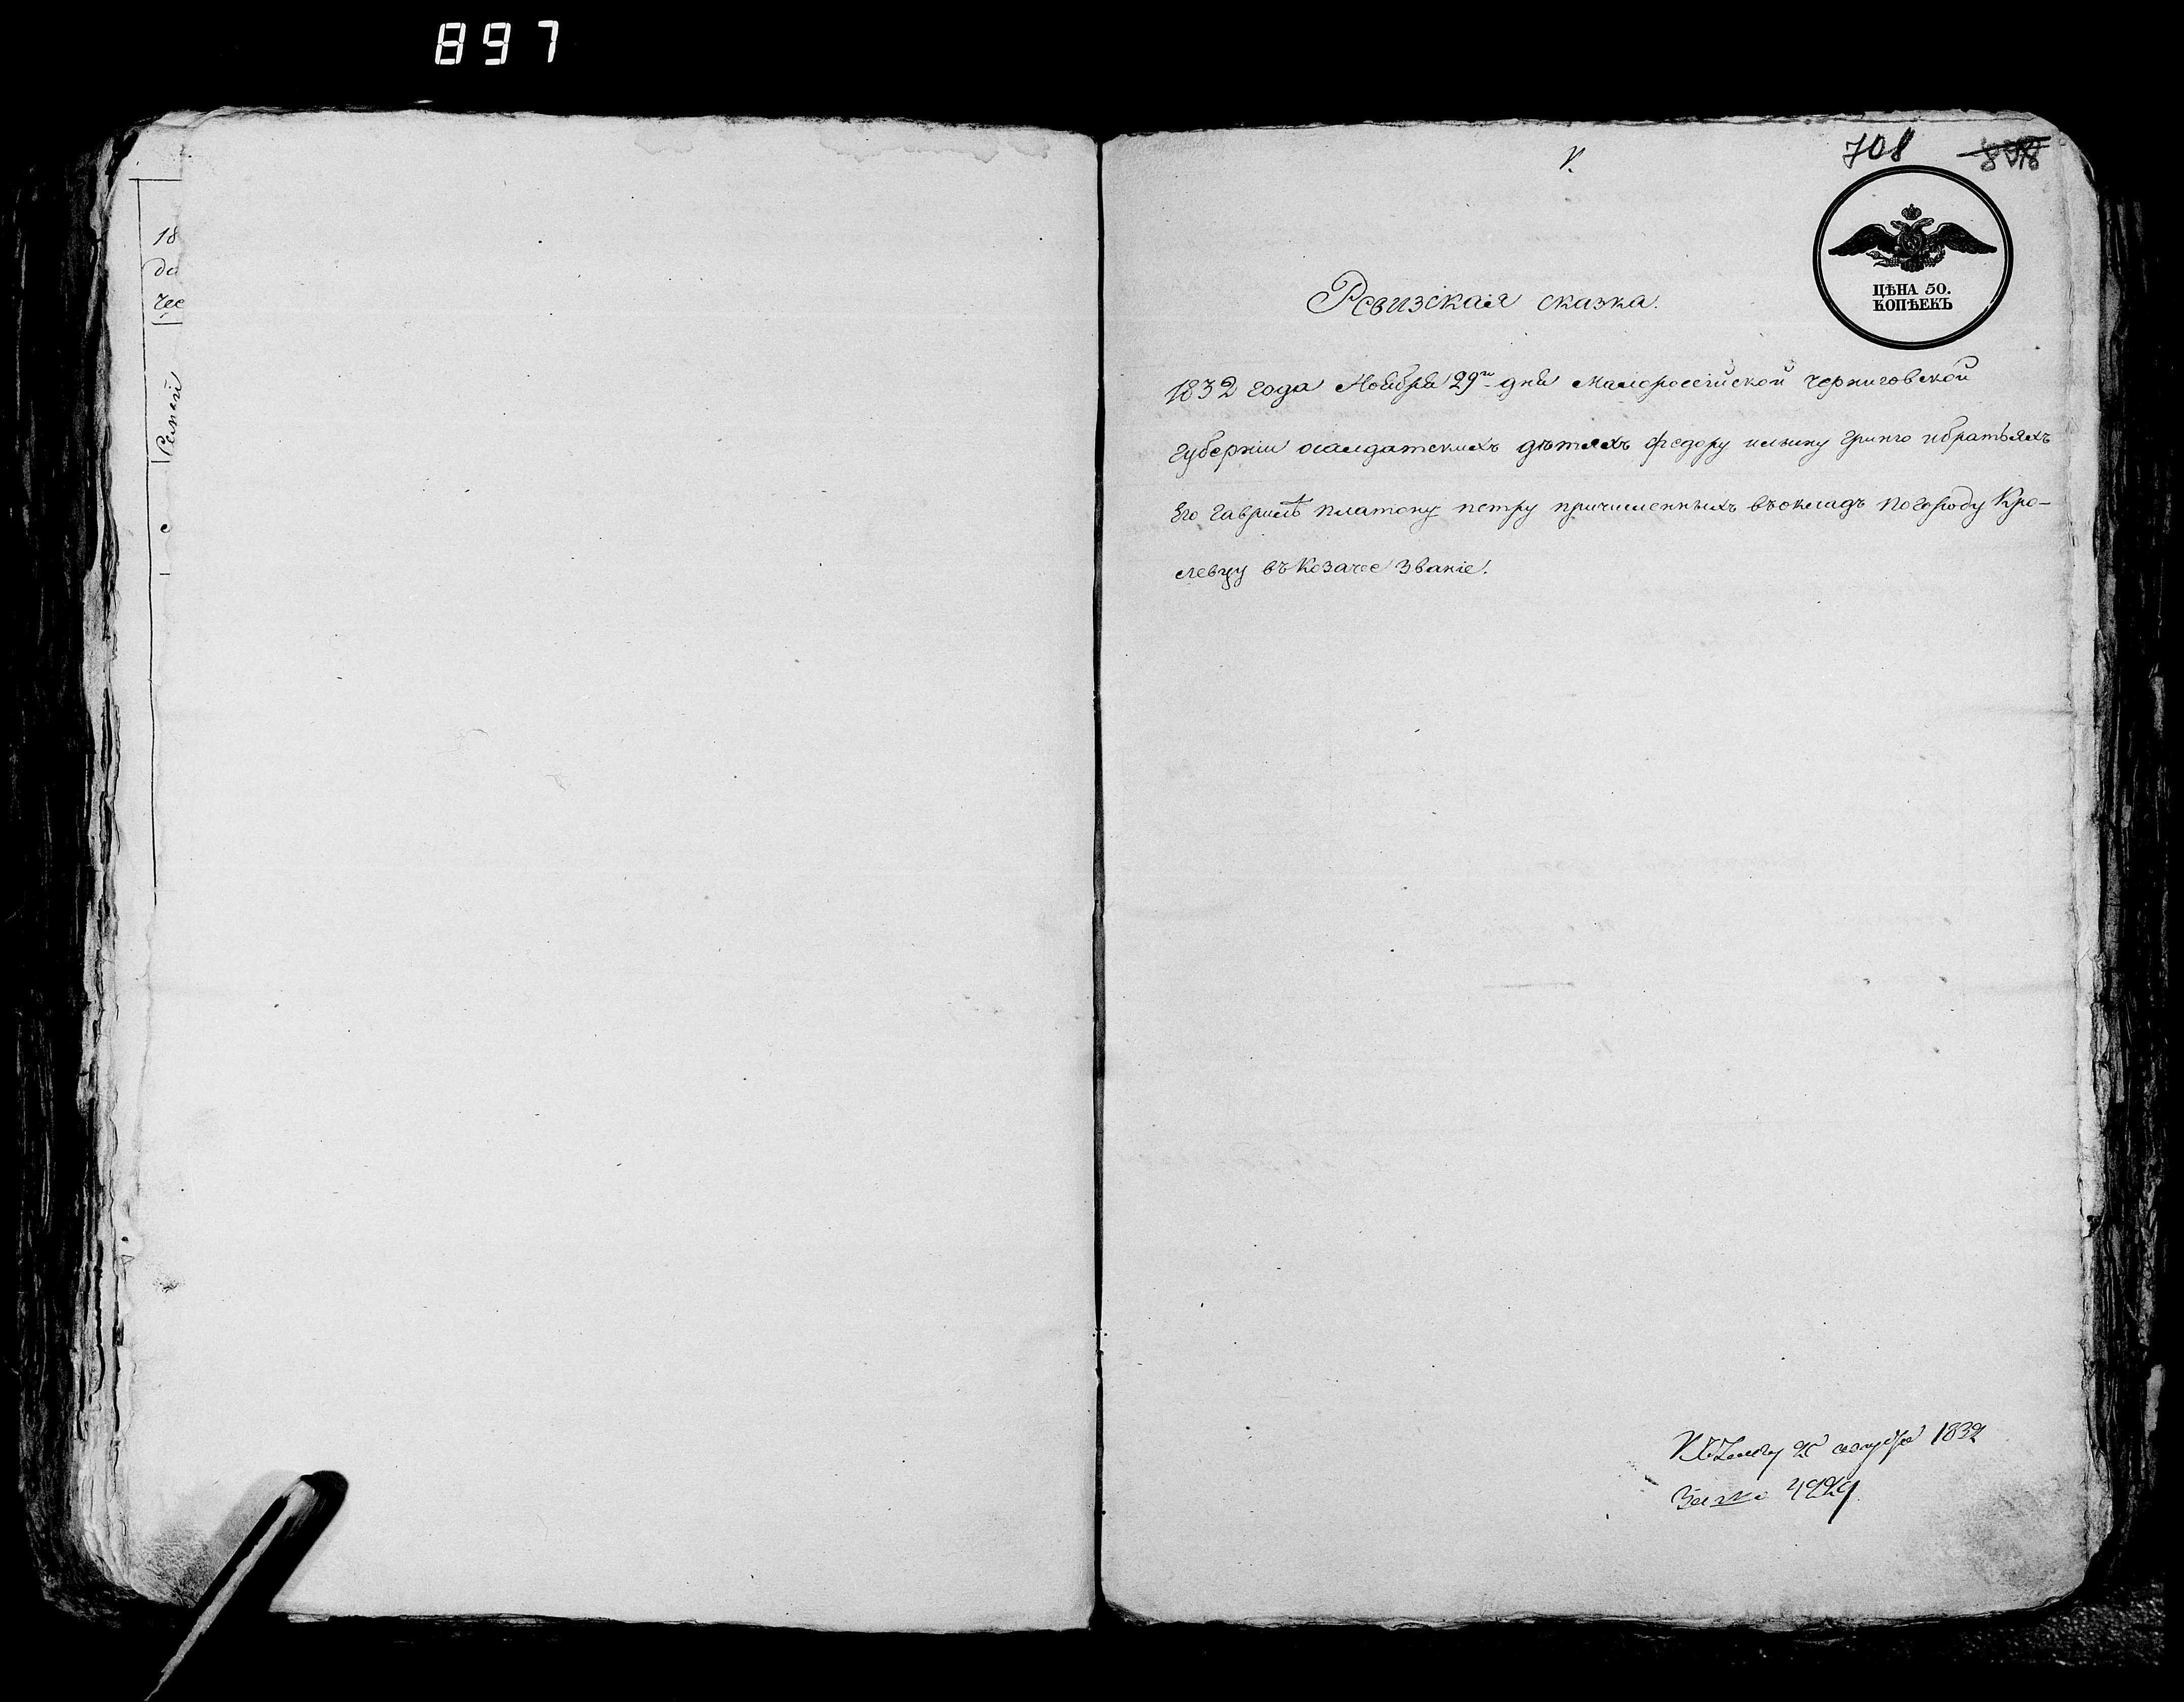 897
18
да
чес
с
V.
708
898
ЦѢНА 50.
КОПѢЕКЪ
Ревизская сказка.
1832 года Ноября 29го дня Малороссійской черниговской
губерніи осалдатскихъ дѣтяхъ федору ильину гринго ибратьяхъ
Его гаврилѣ платону петру причисленныхъ въокладъ погороду Кро-
левцу въ Козачее званіе.
1832